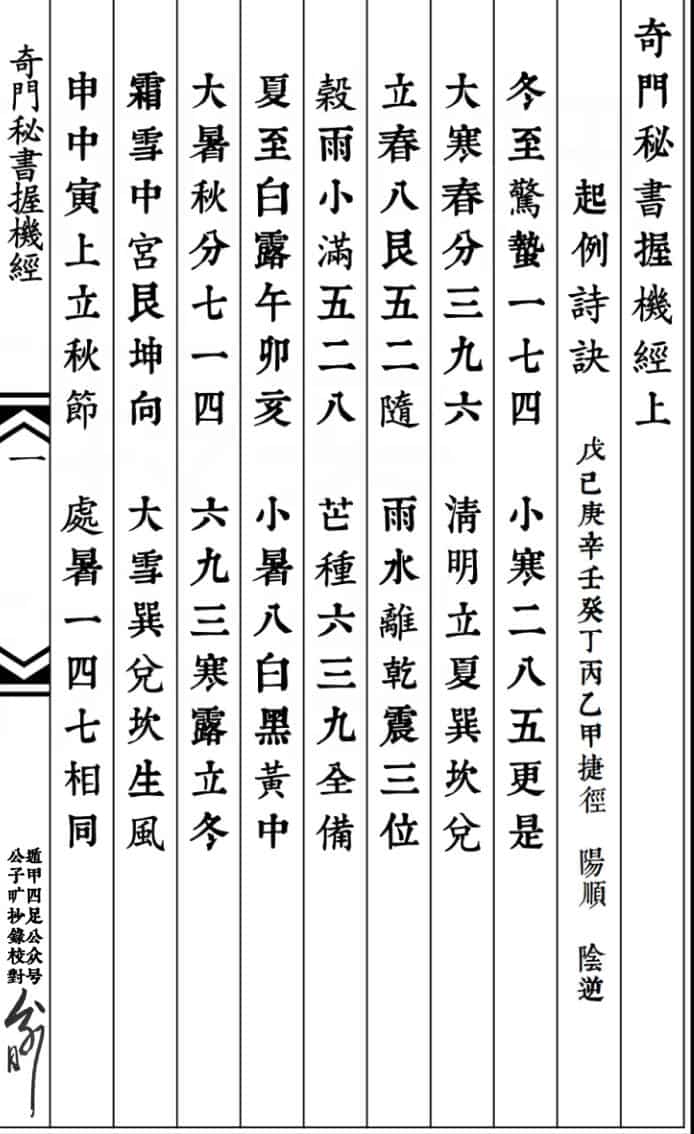 奇門秘書握機經上
起例詩訣 戊己庚辛壬癸丁丙乙甲捷徑 陽順 陰逆
冬至驚蟄一七四 小寒二八五更是
大寒春分三九六 清明立夏巽坎兌
立春八艮五二隨 雨水離乾震三位
穀雨小滿五二八 芒種六三九全備
夏至白露午卯亥 小暑八白黑黃中
大暑秋分七一四 六九三寒露立冬
霜雪中宮艮坤向 大雪巽兌坎生風
申中寅上立秋節 處暑一四七相同
奇門秘書握機經
一
遁甲四足公众号
公子旷抄錄校對